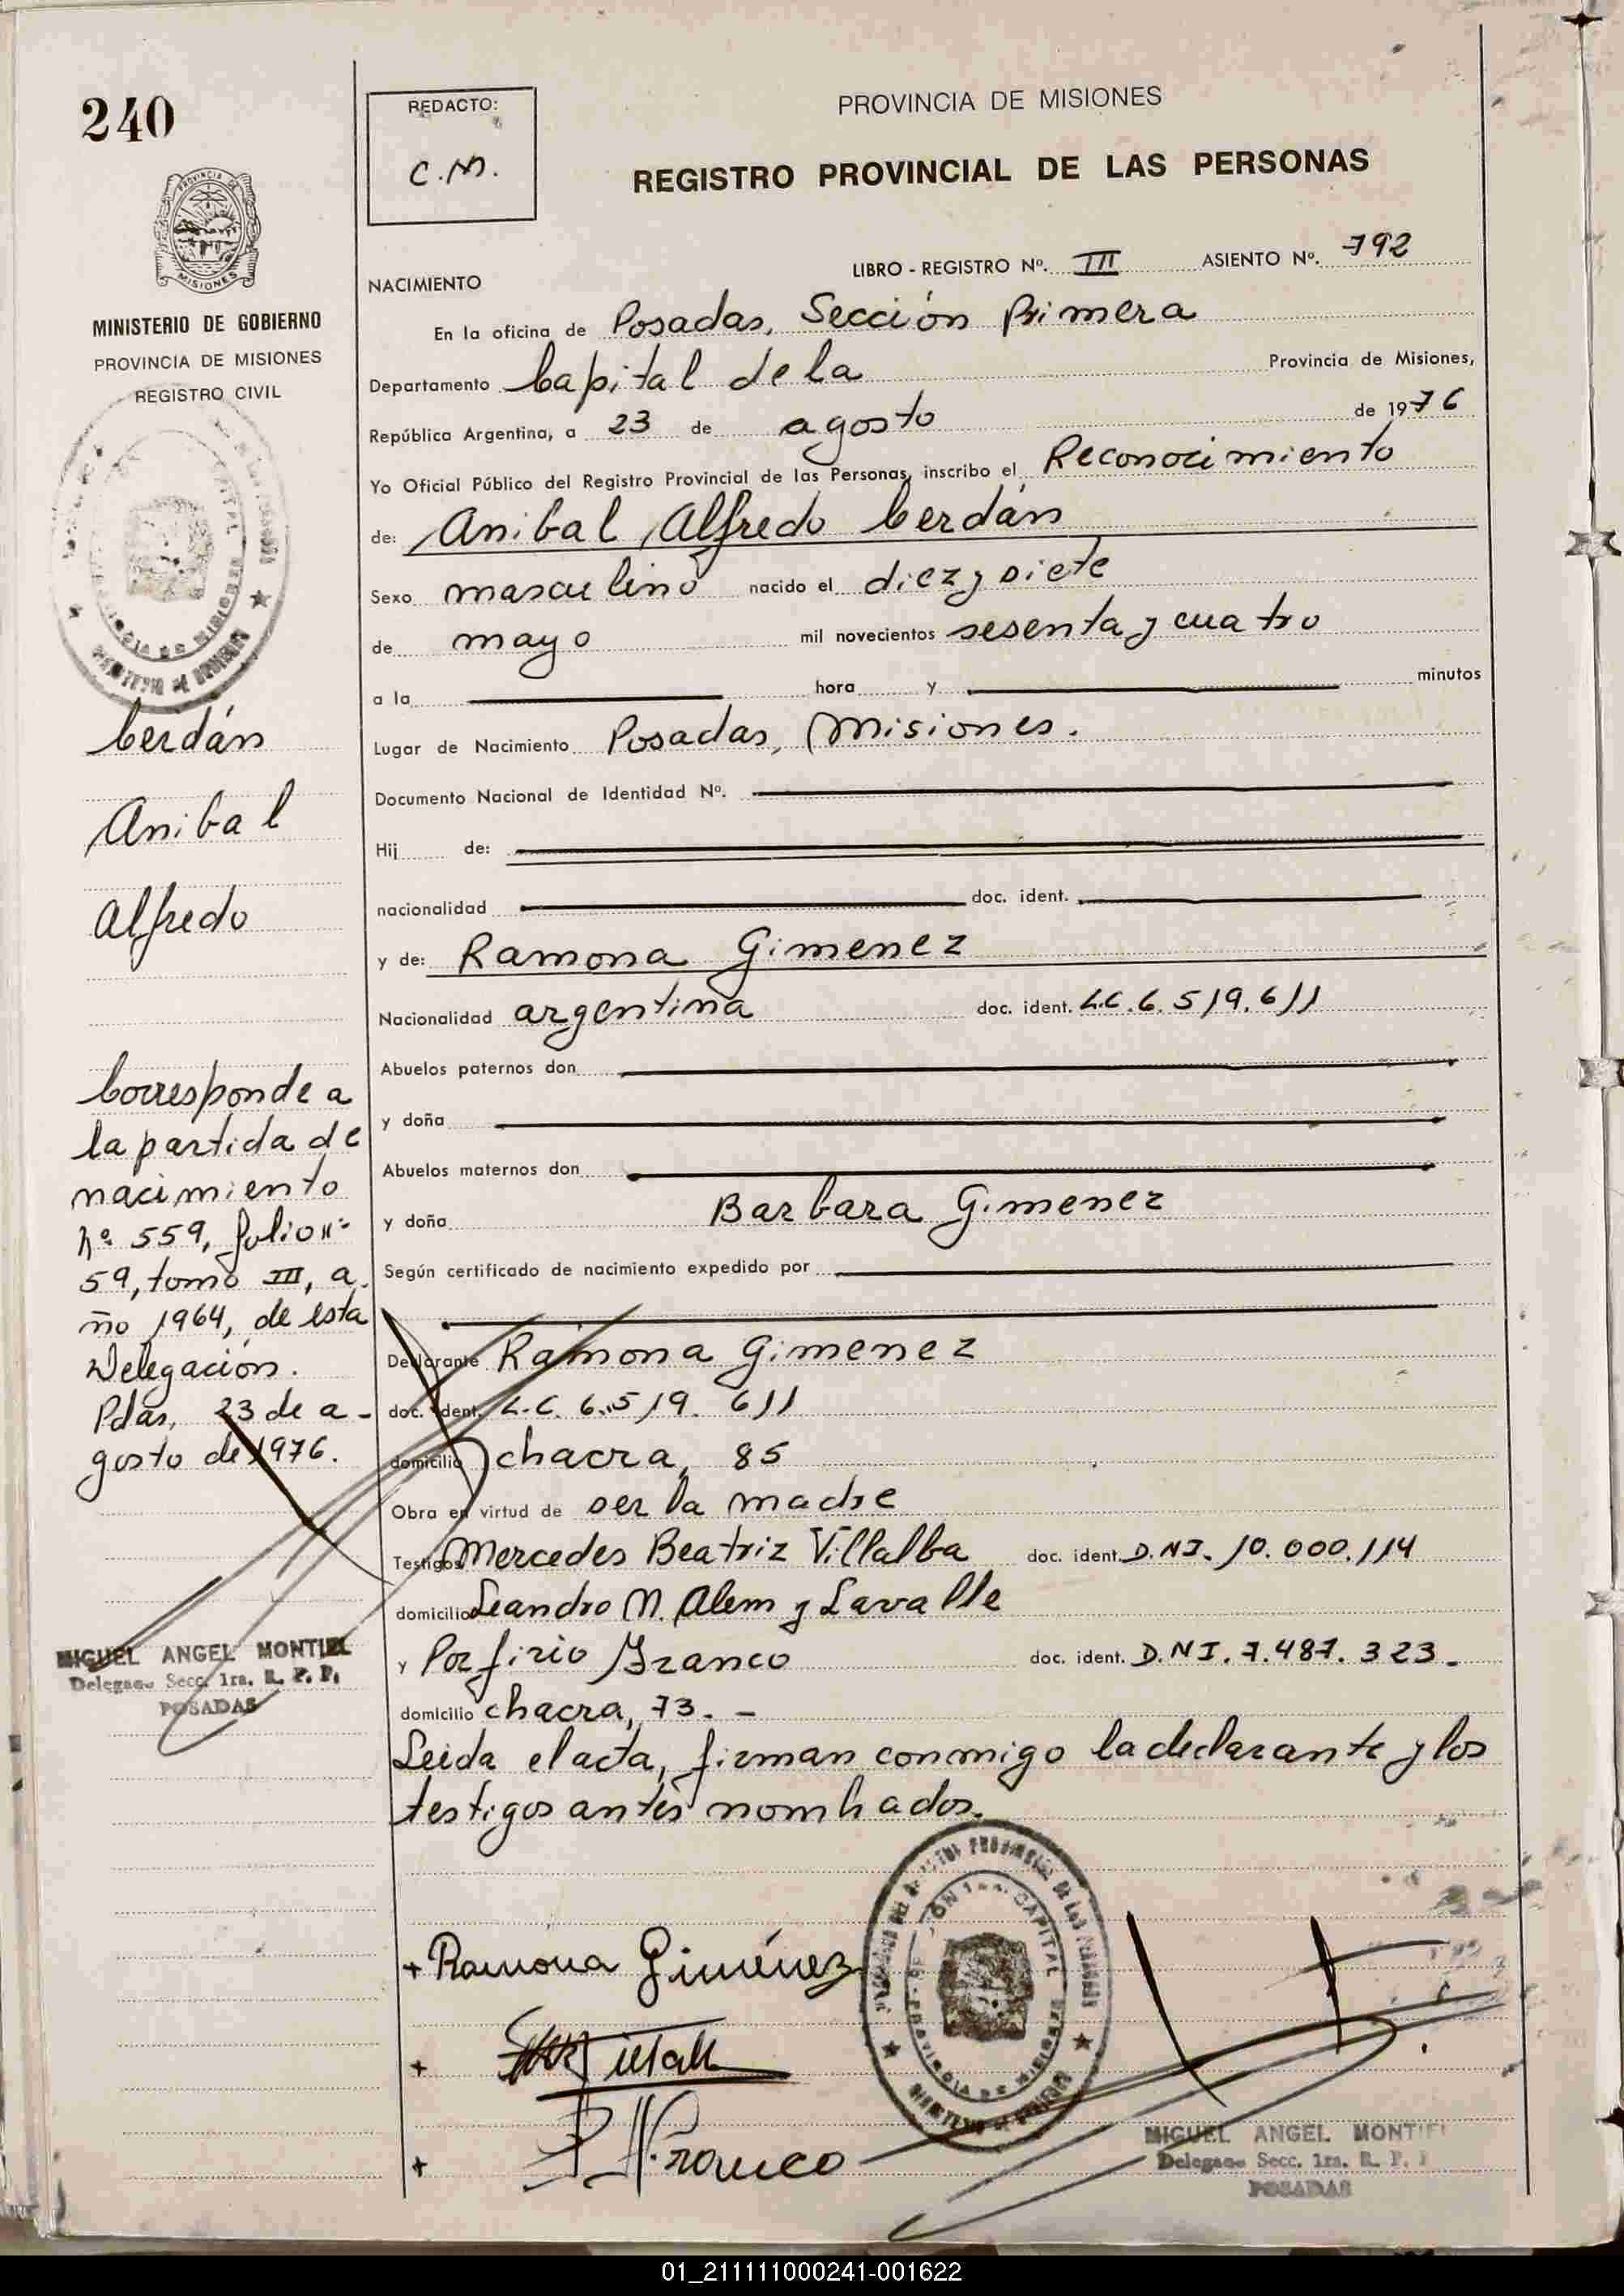 240
REDACTO:
C.M.
PROVINCIA DE MISIONES
REGISTRO PROVINCIAL DE LAS PERSONAS
PROVINCIA DE
MISIONES
MINISTERIO DE GOBIERNO
PROVINCIA DE MISIONES
REGISTRO CIVIL
NACIMIENTO
LIBRO - REGISTRO Nº. III ASIENTO Nº. 792
En la oficina de Posadas, Sección Primera
Departamento Capital de la Provincia de Misiones,
República Argentina, a 23 de agosto de 1976
Yo Oficial Público del Registro Provincial de las Personas, inscribo el Reconocimiento
de: Anibal Alfredo Cerdán
Sexo masculino nacido el diez y siete
de mayo mil novecientos sesenta y cuatro
a la hora y minutos
Lugar de Nacimiento Posadas, Misiones.
Documento Nacional de Identidad Nº.
Hij de:
nacionalidad doc. ident.
y de: Ramona Gimenez
Nacionalidad argentina doc. ident. L.C. 6.519.611
Abuelos paternos don
y doña
Abuelos maternos don
y doña Barbara Gimenez
Según certificado de nacimiento expedido por
Declarante Ramona Gimenez
doc. ident. L.C. 6.519.611
domicilio chacra, 85
Obra en virtud de ser la madre
Testigos Mercedes Beatriz Villalba doc. ident. D.N.I. 10.000.114
domicilio Leandro N. Alem y Lavalle
y Porfirio Franco doc. ident. D.N.I. 7.487.323.-
domicilio chacra, 73.-
Leida el acta, firman conmigo la declarante y los
testigos antes nombrados.
Cerdán
Anibal
Alfredo
Corresponde a
la partida de
nacimiento
Nº 559, folio nº
59, tomo III, a
ño 1964, de esta
Delegación.
Pdas, 23 de a-
gosto de 1976.
MIGUEL ANGEL MONTIEL
Delegado Secc. 1ra. R. P. P.
POSADAS
+ Ramona Giménez
+
+ Franco
CAPITAL
PROVINCIA DE MISIONES
MINISTERIO DE GOBIERNO
MIGUEL ANGEL MONTIEL
Delegado Secc. 1ra. R. P. P.
POSADAS
01_211111000241-001622